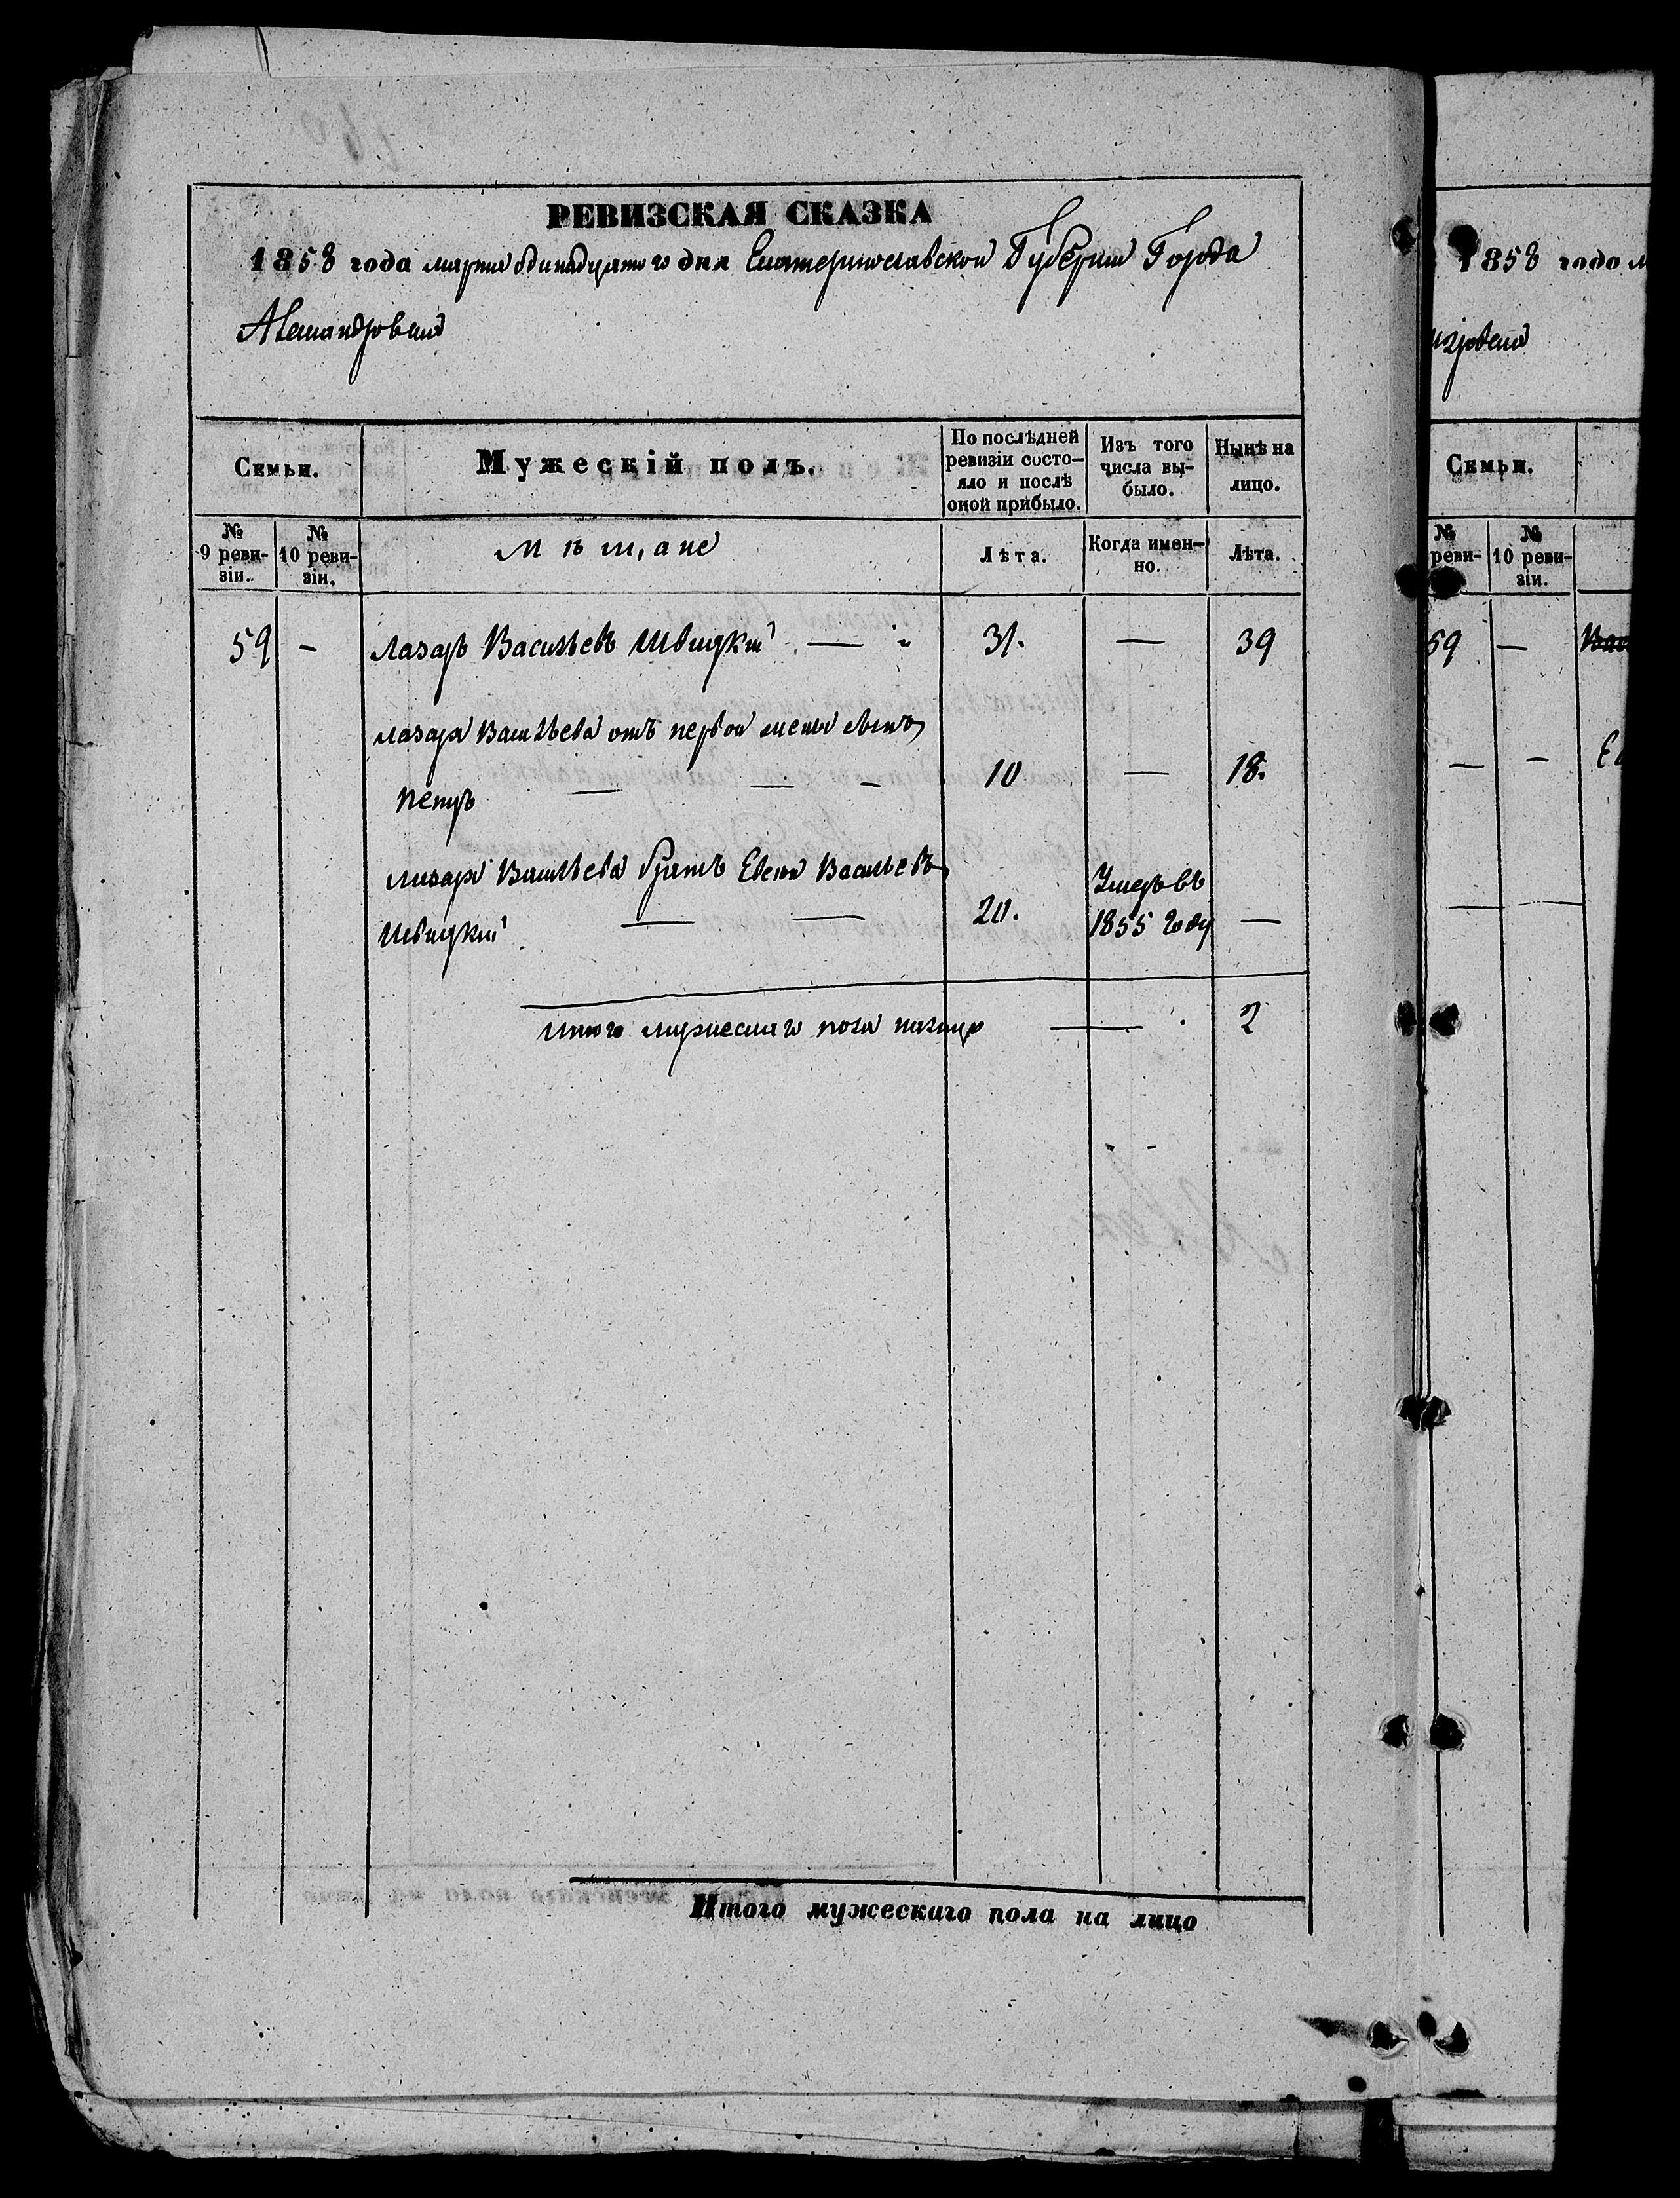 РЕВИЗСКАЯ СКАЗКА
1858 года марта одинадцатого дня Екатеринославской Губернии Города
Александровска
Семьи.
Мужескій полъ.
По послѣдней ревизіи состо-
яло и послѣ
оной прибыло.
Изъ того
числа вы-
было.
Нынѣ на
лицо.
№
9 реви-
зіи.
№
10 реви-
зіи.
Мѣщане
Лѣта.
Когда имен-
но.
Лѣта.
59 — Лазарь Васильевъ Швицкій — " 31. — 39
Лазаря Васильева отъ первой жены сынъ
Петръ — — — 10 — 18.
Лазаря Васильева братъ Евсей Васильевъ
Швицкій — — 20. Умеръ въ
1855 году —
Итого мужескаго пола налицо — . 2
Итого мужескаго пола на лицо
1858 года м
Семьи.
№
реви-
№
10 реви-
зіи.
59 — Вас
— —